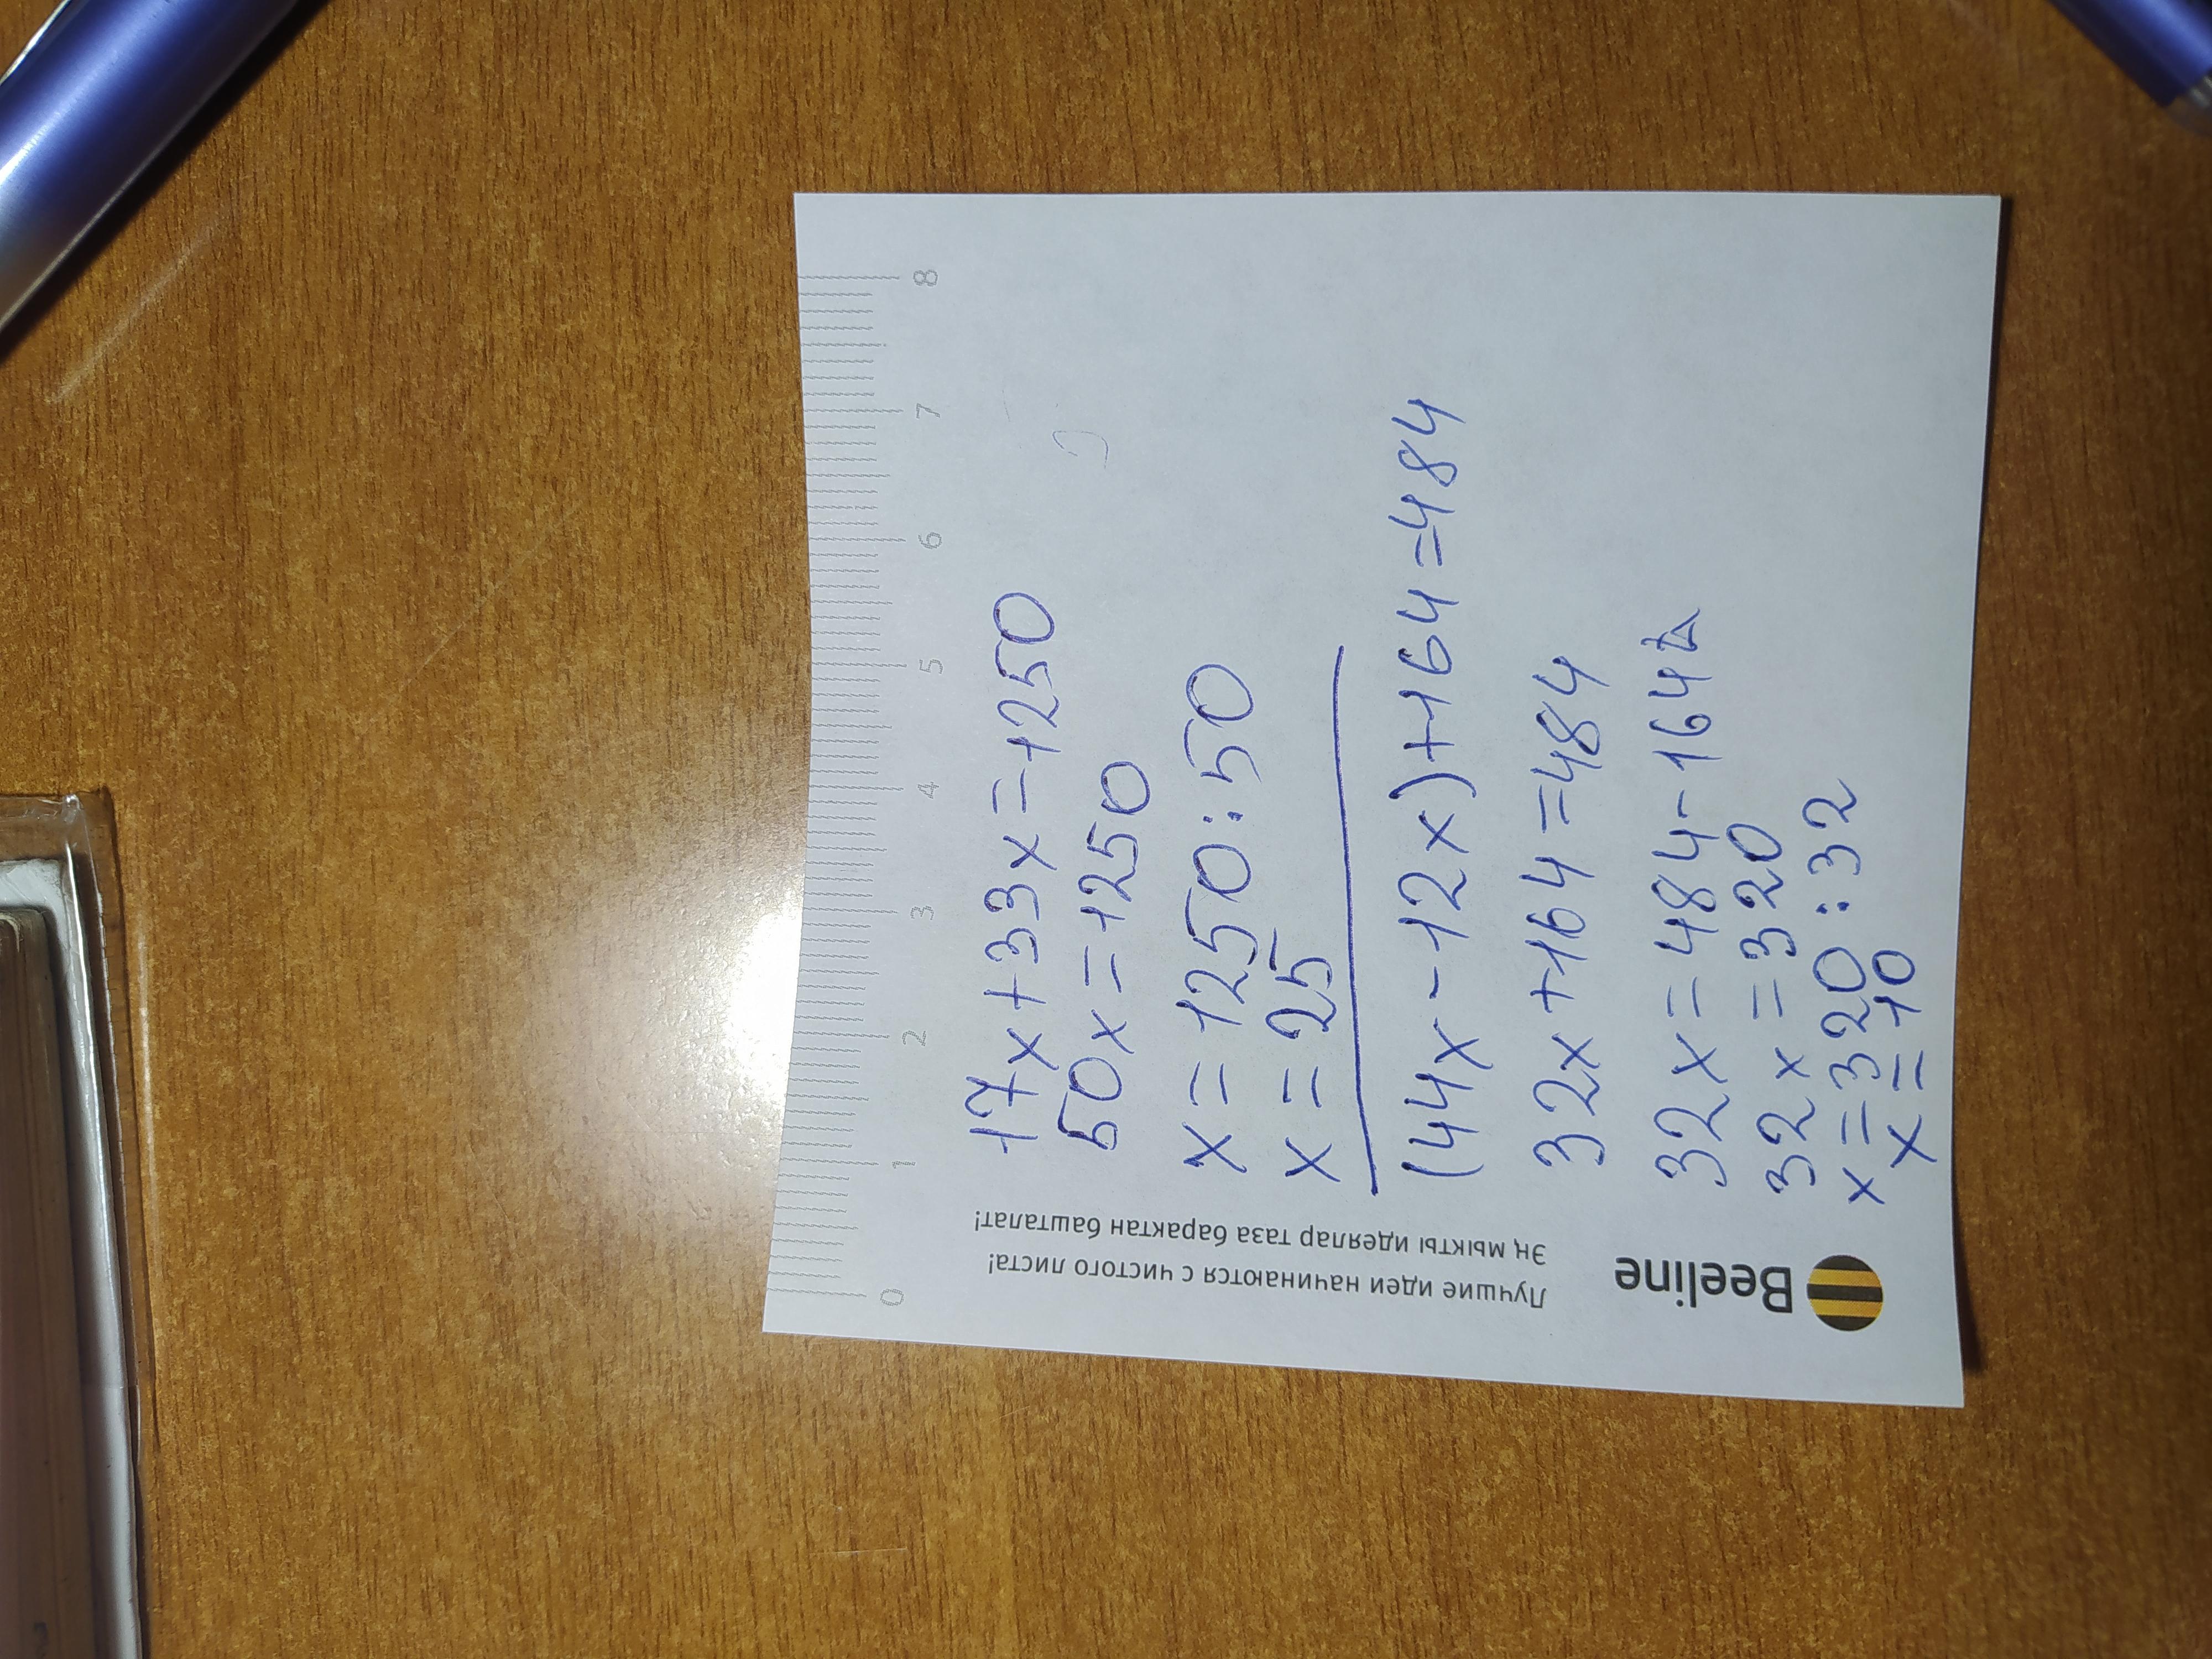 17x+33x=1250
50x=1250
x=1250:50
x=25
(44x-12x)+164=484
32x+164=484
32x=484-164
32x=320
x=320:32
x=10
0 1 2 3 4 5 6 7 8
Beeline
Лучшие идеи начинаются с чистого листа!
Эң мыкты идеялар таза барактан башталат!